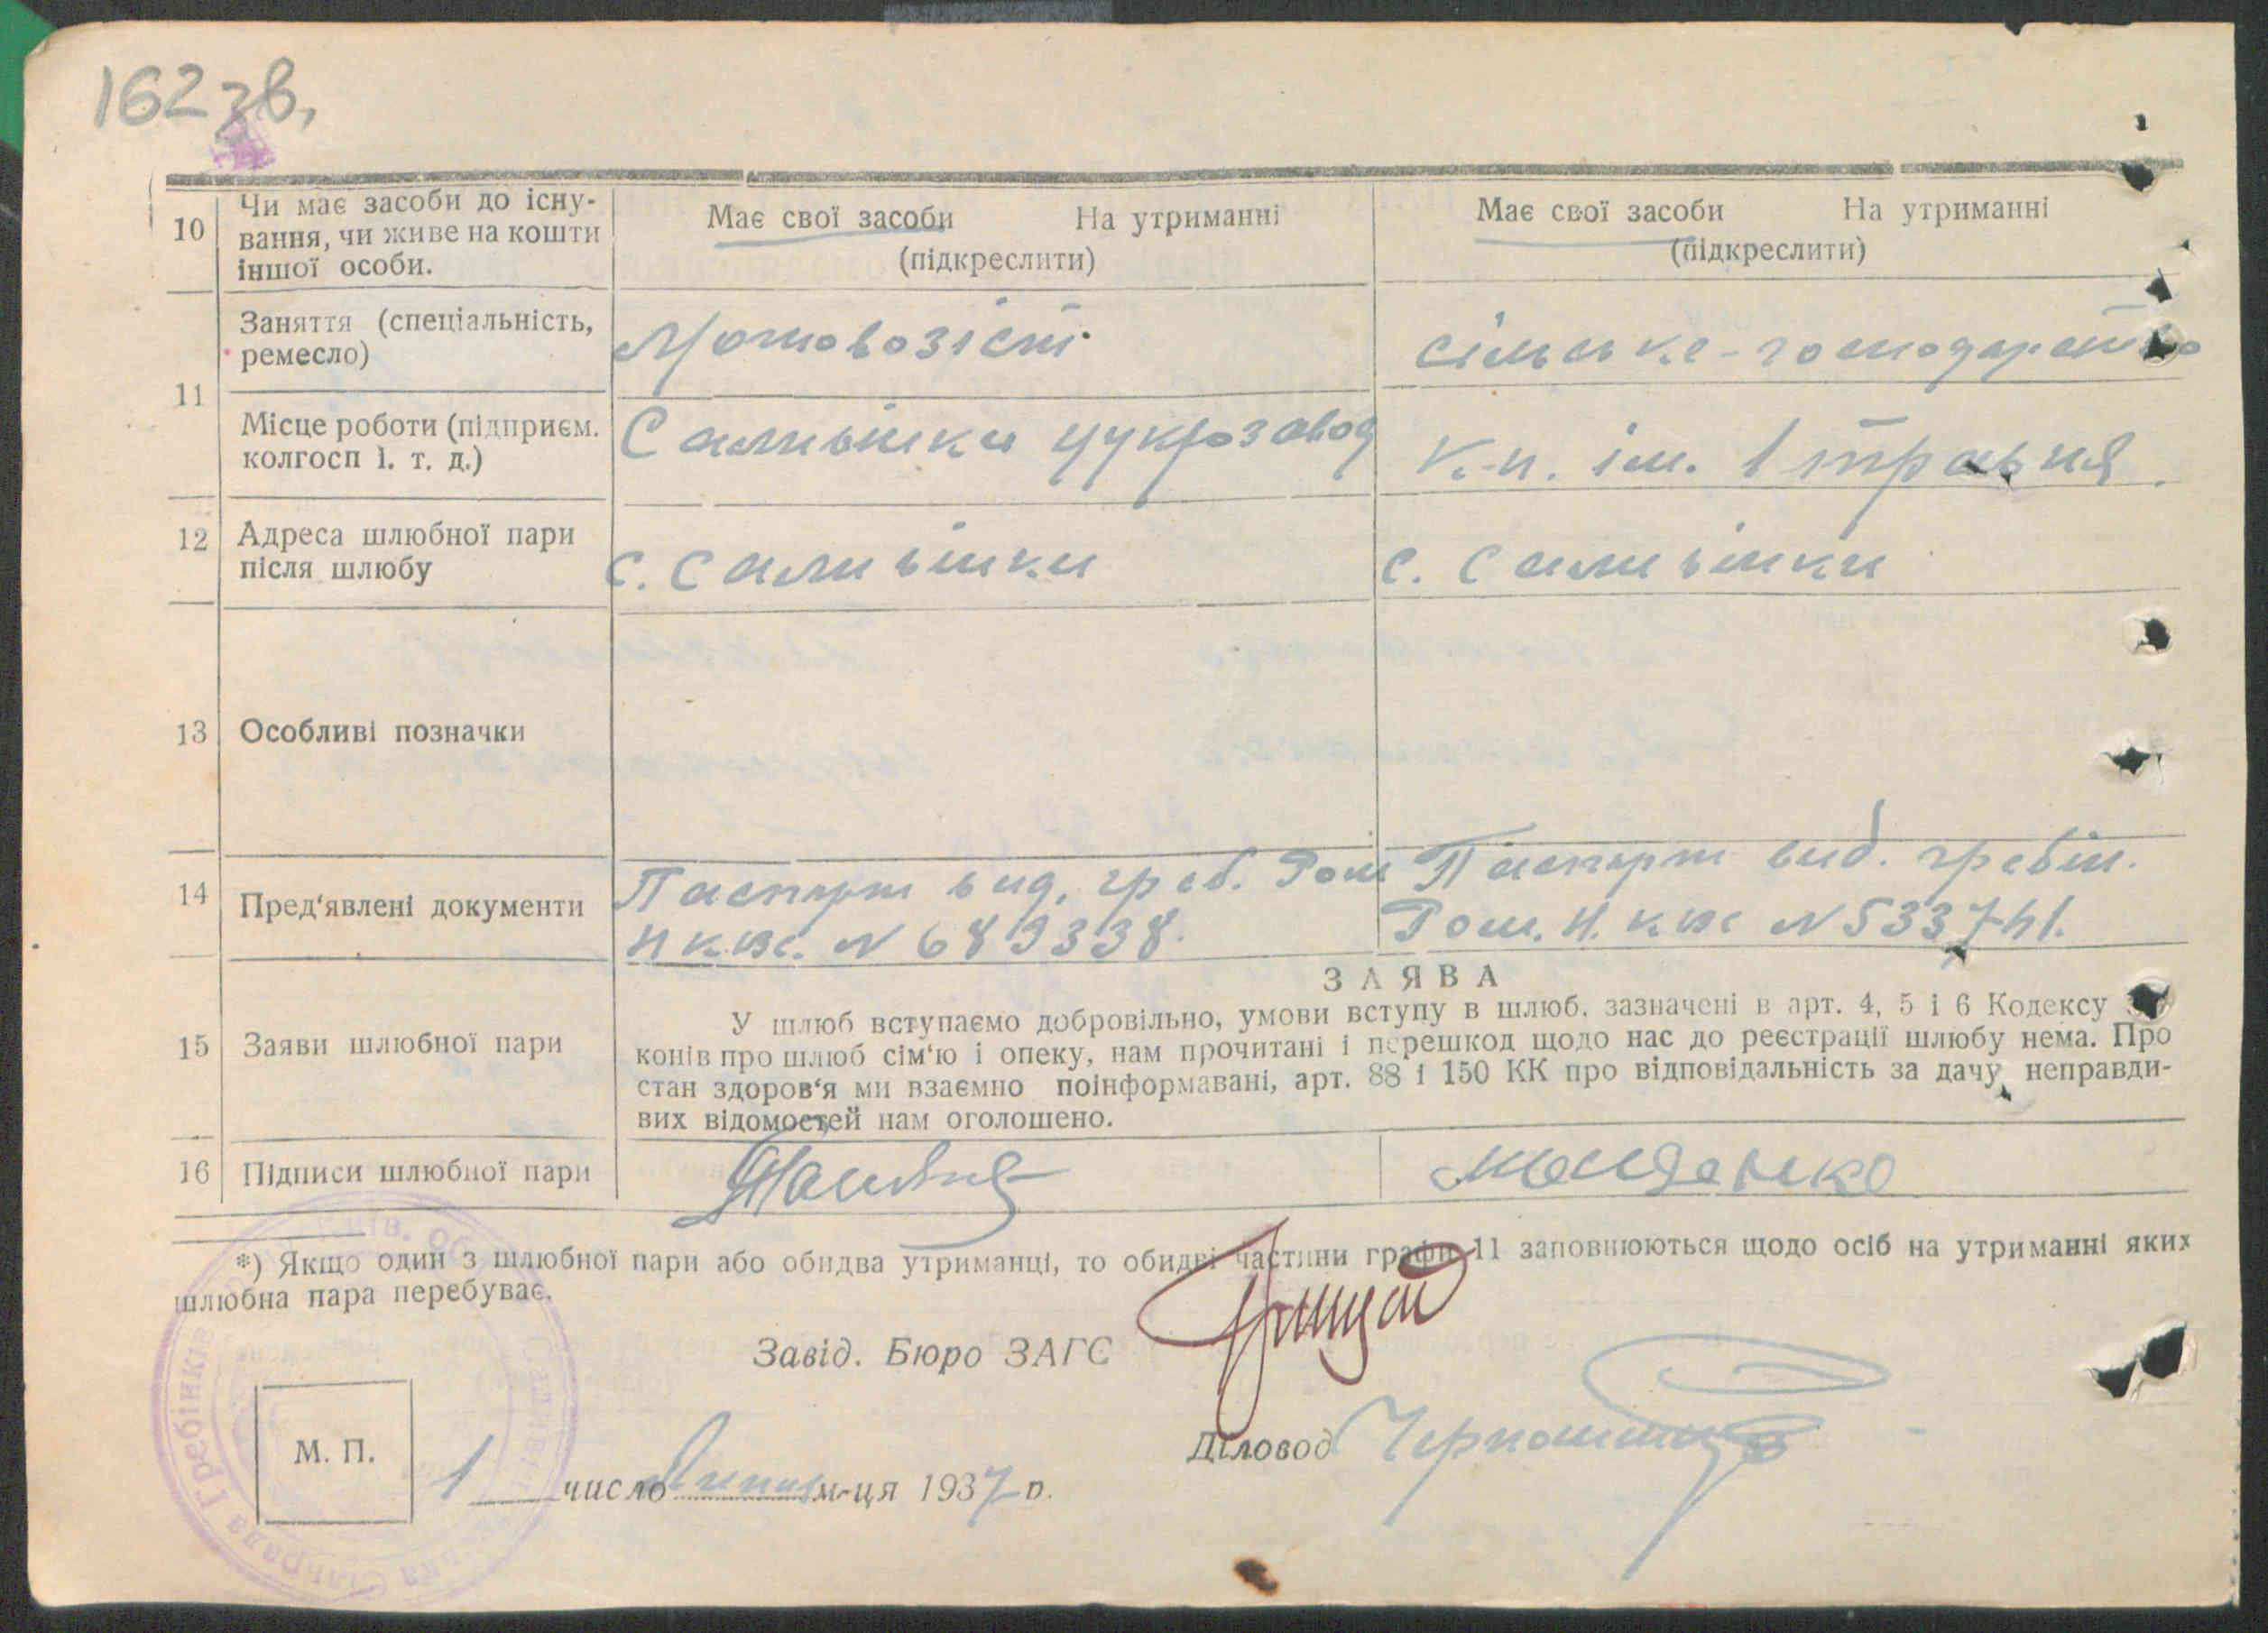 162 зв.
10 Чи має засоби до існу-
вання, чи живе на кошти
іншої особи.
Має свої засоби На утриманні
(підкреслити)
Має свої засоби На утриманні
(підкреслити)
11 Заняття (спеціальність,
ремесло)
Мотовозіст
сільське-господарство
Місце роботи (підприєм.
колгосп і. т. д.)
Саливінки цукрозавод
К-п. ім. 1 травня.
12 Адреса шлюбної пари
після шлюбу
с. Саливінки
с. Саливінки
13 Особливі позначки
14 Пред'явлені документи
Паспорт вид. греб.
НКВС. N 689338.
Паспорт вид. гребін.
Н. КВС N 533741.
15 Заяви шлюбної пари
ЗАЯВА
У шлюб вступаємо добровільно, умови вступу в шлюб. зазначені в арт. 4, 5 і 6 Кодексу
конів про шлюб сім'ю і опеку, нам прочитані і перешкод щодо нас до реєстрації шлюбу нема. Про
стан здоров'я ми взаємно поінформавані, арт. 88 і 150 КК про відповідальність за дачу неправди-
вих відомостей нам оголошено.
16 Підписи шлюбної пари
*) Якщо один з шлюбної пари або обидва утриманці, то обидві частини графи 11 заповнюються щодо осіб на утриманні яких
шлюбна пара перебуває.
Завід. Бюро ЗАГС
Діловод
М. П.
1 число Липня м-ця 1937 р.